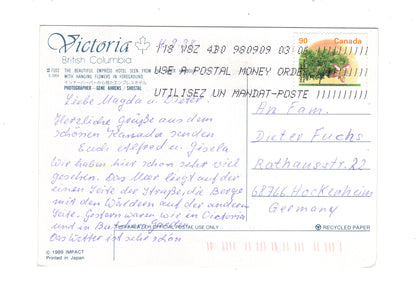 Victoria
British Columbia
THE BEAUTIFUL EMPRESS HOTEL SEEN FROM
WITH HANGING FLOWERS IN FOREGROUND
PHOTOGRAPHER - GENE AHRENS - SHOSTAL
V8Z 4B0 980909 03:06
USE A POSTAL MONEY ORDER
UTILISEZ UN MANDAT-POSTE
90 Canada
Liebe Magda u. Dieter.
Herzliche Grüße aus dem
schönen Kanada senden
Euch Alfred u. Gisela
Wir haben hier schon sehr viel
gesehen. Das Meer liegt auf der
einen Seite der Straße, die Berge
mit den Wäldern auf der anderen
Seite. Gestern waren wir in Victoria
und in
Das Wetter ist sehr schön
An Fam.
Dieter Fuchs
Rathausstr. 22
68766 Hockenheim
Germany
POSTAL USE ONLY
RECYCLED PAPER
© 1989 IMPACT
Printed in Japan